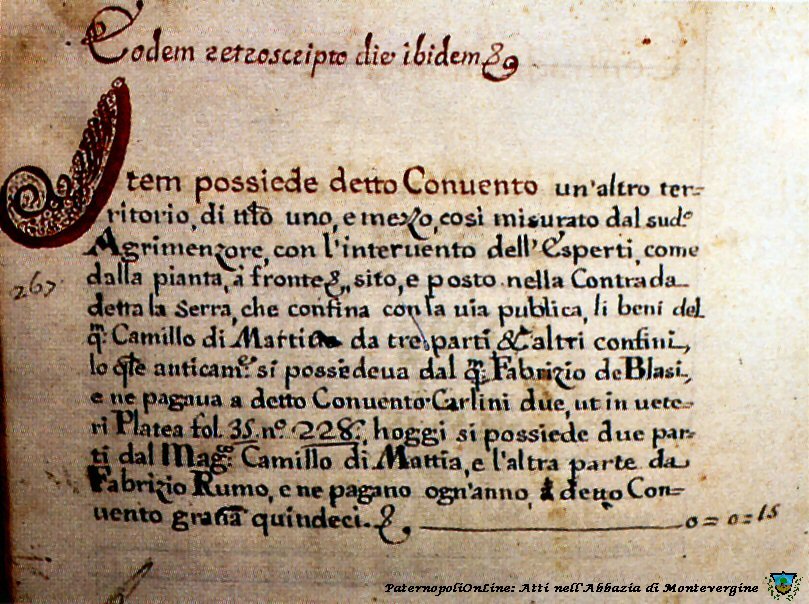 Eodem retroscripto die ibidem &
Item possiede detto Conuento un'altro ter=
ritorio, di tt̃o uno, e mezo, così misurato dal sud.º
Agrimenzore, con l'interuento dell'Esperti, come
dalla pianta, à fronte &, sito, e posto nella Contrada
267
detta la Serra, che confina con la uia publica, li beni del
q̃: Camillo di Mattia da tre parti & altri confini,
lo q̃le anticam.e si possedeua dal q̃: Fabrizio de Blasi,
e ne pagaua a detto Conuento Carlini due, ut in uete=
ri Platea fol. 35. nº. 228., hoggi si possiede due par=
ti dal Mag.º Camillo di Mattia, e l'altra parte da
Fabrizio Rumo, e ne pagano ogn'anno, à detto Con=
uento grana quindeci. & 0=0=15
PaternopoliOnLine: Atti nell'Abbazia di Montevergine